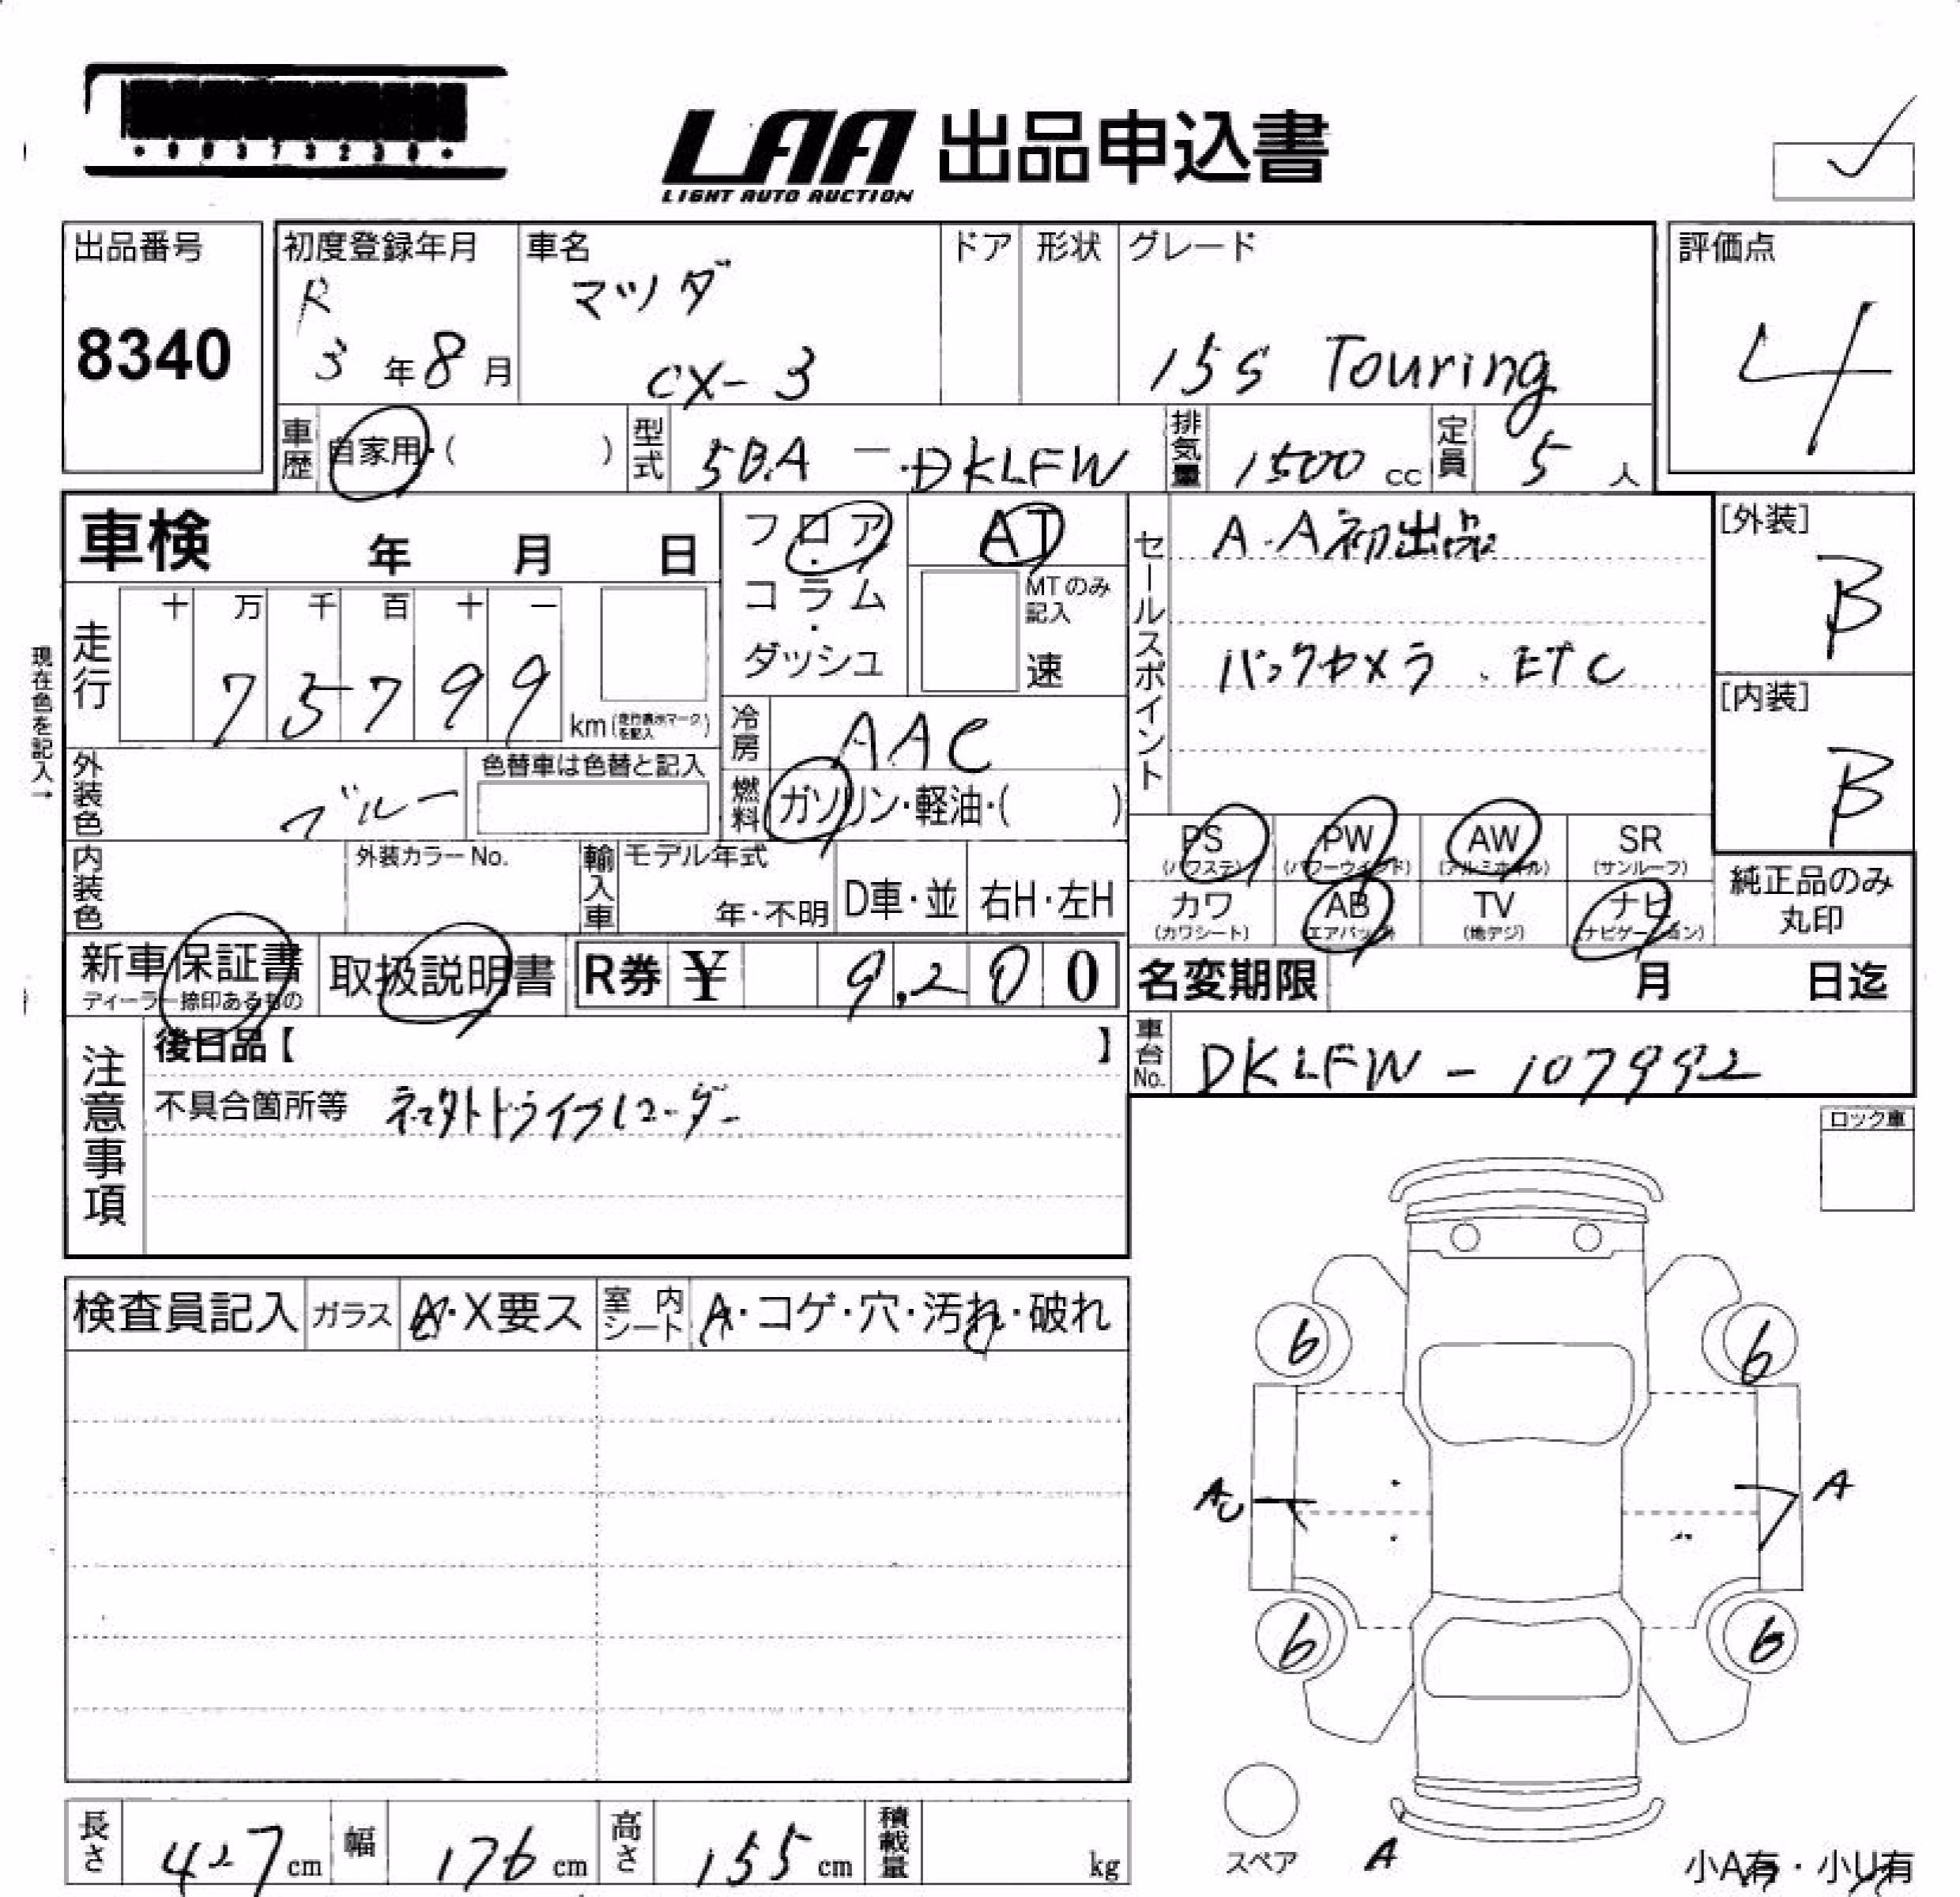 ・90373230・
LAA 出品申込書
LIGHT AUTO AUCTION
出品番号
8340
初度登録年月
R
3 年 8 月
車名
マツダ
CX-3
ドア
形状
グレード
15S Touring
評価点
4
車歴 自家用・( )
型式 5BA-DKLFW
排気量 1500 cc
定員 5 人
車検 年 月 日
フロア
・
コラム
・
ダッシュ
AT
MTのみ
記入
速
セールスポイント
A.A初出品
バックカメラ . ETC
[外装]
B
[内装]
B
現在色を記入→
走行
十 万 千 百 十 一
7 5 7 9 9
km(走行表示マークを記入)
冷房 AAC
燃料 ガソリン・軽油・( )
外装色 ブルー
色替車は色替と記入
内装色
外装カラーNo.
輸入車
モデル年式
年・不明
D車・並
右H・左H
PS
(パワステ)
PW
(パワーウインド)
AW
(アルミホイール)
SR
(サンルーフ)
カワ
(カワシート)
AB
(エアバック)
TV
(地デジ)
ナビ
(ナビゲーション)
純正品のみ
丸印
新車保証書
ディーラー捺印あるもの
取扱説明書
R券 ¥ 9,200
名変期限 月 日迄
車台No. DKLFW-107992
注意事項
後日品【 】
不具合箇所等 ドライブレコーダー
ロック車
検査員記入
ガラス A・X要ス
室内シート A・コゲ・穴・汚れ・破れ
6
6
A
A
6
6
スペア
A
小A有・小U有
長さ 427 cm
幅 176 cm
高さ 155 cm
積載量 kg